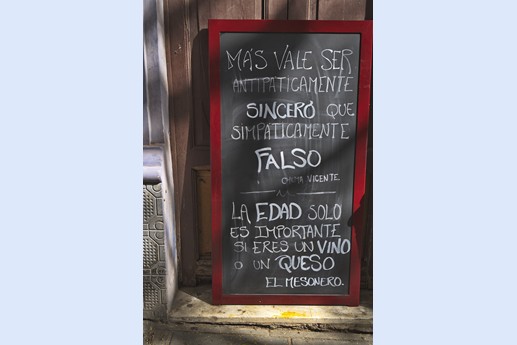 MÁS VALE SER
ANTIPÁTICAMENTE
SINCERO QUE
SIMPÁTICAMENTE
FALSO
CHEMA VICENTE
LA EDAD SOLO
ES IMPORTANTE
SI ERES UN VINO
O UN QUESO
EL MESONERO.